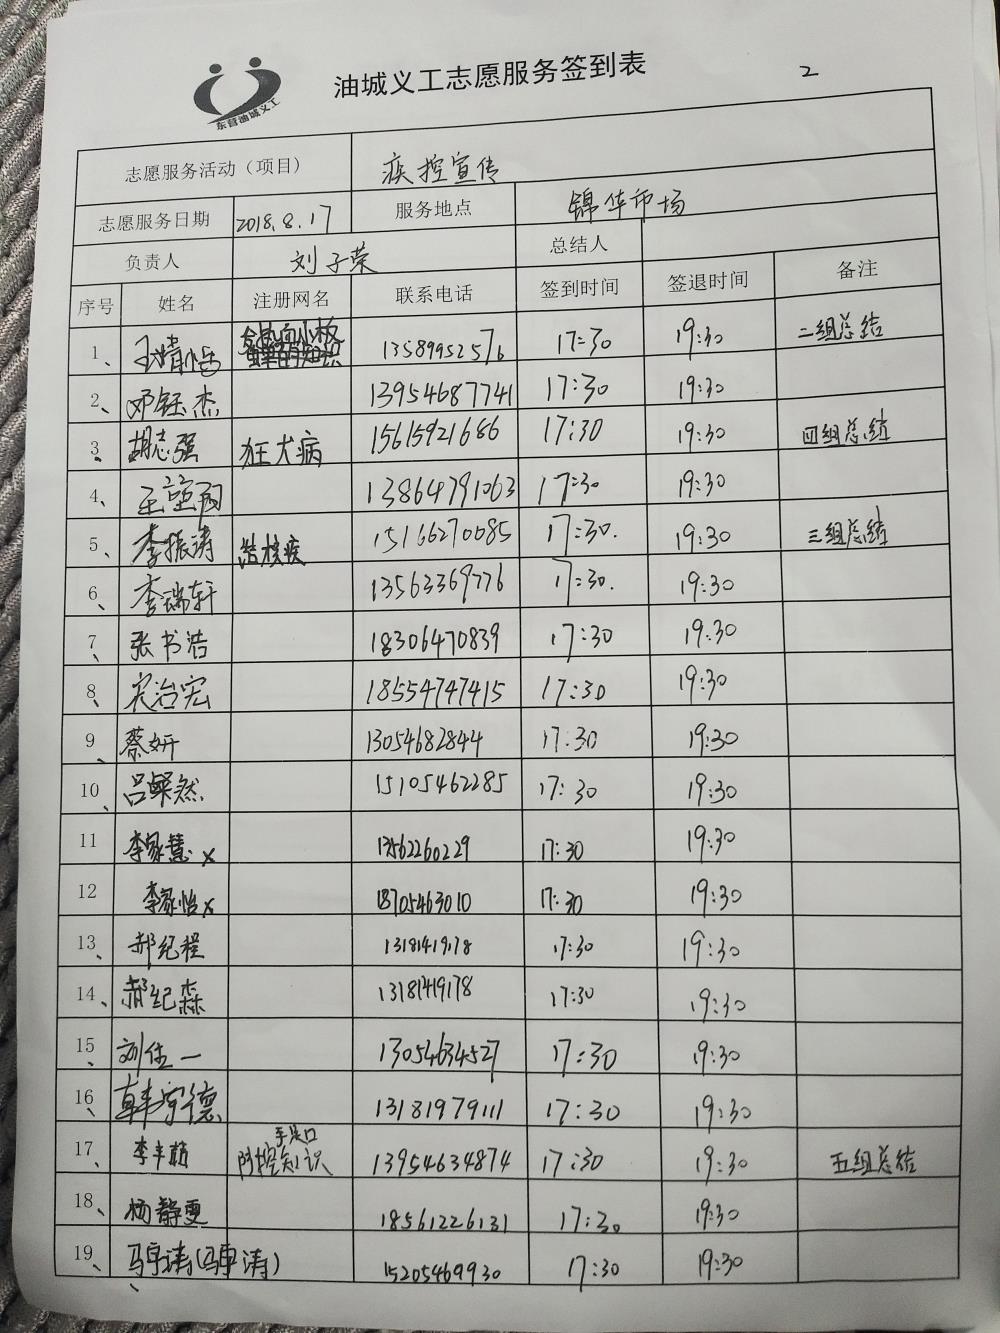 东营油城义工
油城义工志愿服务签到表
2
志愿服务活动（项目） 疾控宣传
志愿服务日期 2018.8.17 服务地点 锦华市场
负责人 刘子荣 总结人
序号 姓名 注册网名 联系电话 签到时间 签退时间 备注
1、 13589952576 17:30 19:30 二组总结
2、 邓钰杰 13954687741 17:30 19:30
3、 胡志强 狂犬病 15615921686 17:30 19:30 四组总结
4、 13864791063 17:30 19:30
5、 李振涛 结核疾 15166270085 17:30. 19:30 三组总结
6、 李瑞轩 13563369776 17:30. 19:30
7、 张书浩 18306470839 17:30 19:30
8、 治宏 18554747415 17:30 19:30
9、 蔡妍 13054682844 17:30 19:30
10、 吕 然 15105462285 17:30 19:30
11 李家慧x 13562260229 17:30 19:30
12 李家怡x 18705463010 17:30 19:30
13、 郝纪程 13181419178 17:30 19:30
14、 郝纪森 13181419178 17:30 19:30
15、 刘佳一 13054634527 17:30 19:30
16、 韩宇德 13181979111 17:30 19:30
17、 李丰 手足口 防控知识 13954634874 17:30 19:30 五组总结
18、 杨静雯 18561226131 17:30 19:30
19、 马宇涛(马宇涛) 15205469930 17:30 19:30